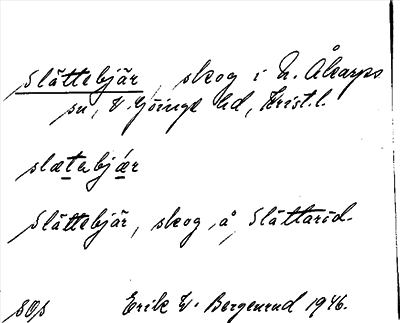 Slättebjär, skog i N. Åkarps
sn, V. Göinge hd, Krist. l.
slætebjær
Slättebjär, skog, å Slättaröd.
SOS Erik W. Bergenrud 1946.